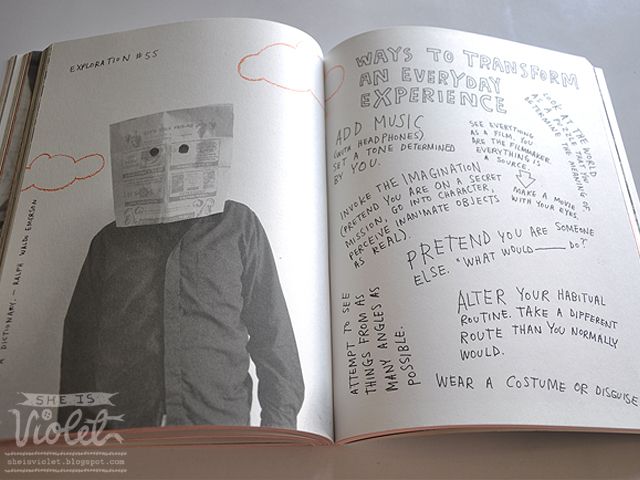 EXPLORATION #55
A DICTIONARY. – RALPH WALDO EMERSON
WAYS TO TRANSFORM
AN EVERYDAY
EXPERIENCE
ADD MUSIC
(WITH HEADPHONES)
SET A TONE DETERMINED
BY YOU.
SEE EVERYTHING
AS A FILM. YOU
ARE THE FILMMAKER.
EVERYTHING IS
A SOURCE.
MAKE A MOVIE
WITH YOUR EYES.
LOOK AT THE WORLD
AS A PUZZLE
THE MEANING OF
INVOKE THE IMAGINATION
(PRETEND YOU ARE ON A SECRET
MISSION, GO INTO CHARACTER,
PERCEIVE INANIMATE OBJECTS
AS REAL).
PRETEND YOU ARE SOMEONE
ELSE. "WHAT WOULD ____ DO?"
ATTEMPT TO SEE
THINGS FROM AS
MANY ANGLES AS
POSSIBLE.
ALTER YOUR HABITUAL
ROUTINE. TAKE A DIFFERENT
ROUTE THAN YOU NORMALLY
WOULD.
WEAR A COSTUME OR DISGUISE
SHE IS
Violet
sheisviolet.blogspot.com